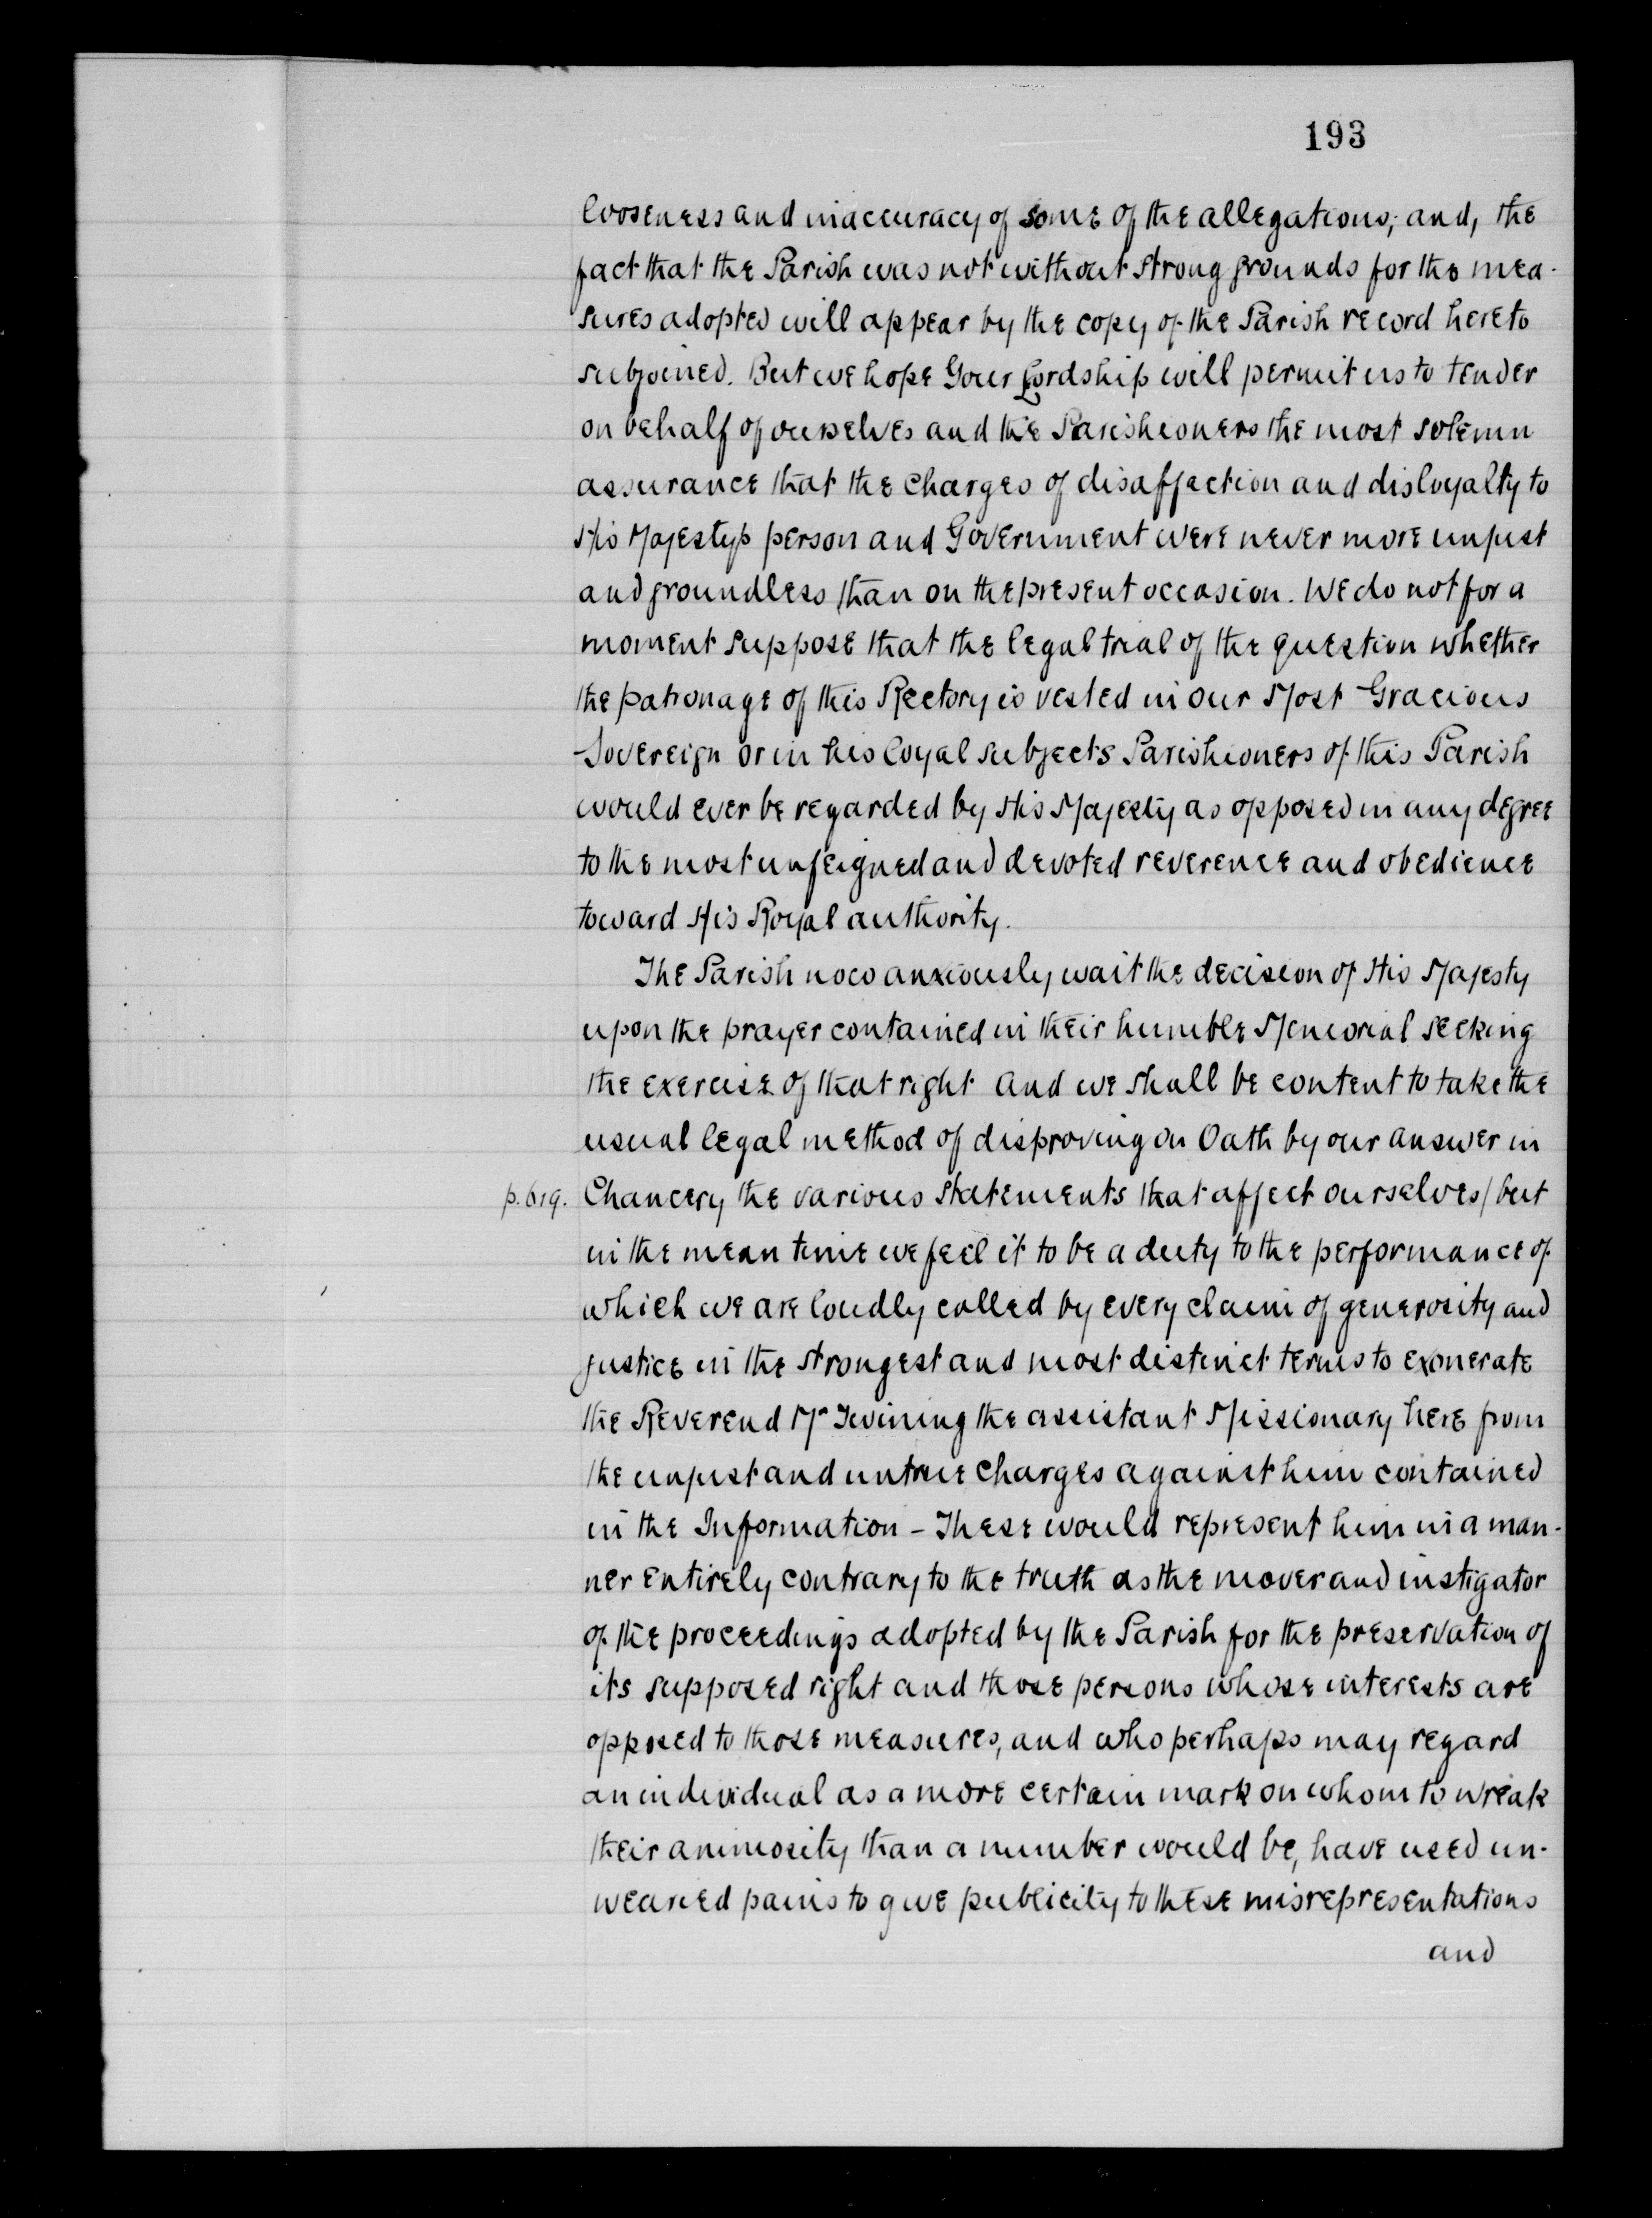 193
looseness and inaccuracy of some of the allegations; and, the
fact that the Parish was not without strong grounds for the mea-
sures adopted will appear by the copy of the Parish record hereto
subjoined. But we hope Your Lordship will permit us to tender
on behalf of ourselves and the Parishioners the most solemn
assurance that the charges of disaffection and disloyalty to
His Majesty's person and Government were never more unjust
and groundless than on the present occasion. We do not for a
moment suppose that the legal trial of the question whether
the patronage of this Rectory is vested in our Most Gracious
Sovereign or in his loyal subjects Parishioners of this Parish
would ever be regarded by His Majesty as opposed in any degree
to the most unfeigned and devoted reverence and obedience
toward His Royal authority.
The Parish now anxiously wait the decision of His Majesty
upon the prayer contained in their humble Memorial seeking
the exercise of that right and we shall be content to take the
usual legal method of disproving on Oath by our answer in
p. 619. Chancery the various statements that affect ourselves/but
in the mean time we feel it to be a duty to the performance of
which we are loudly called by every claim of generosity and
justice in the strongest and most distinct terms to exonerate
the Reverend Mr Twining the assistant Missionary here from
the unjust and untrue charges against him contained
in the Information - These would represent him in a man-
ner entirely contrary to the truth as the mover and instigator
of the proceedings adopted by the Parish for the preservation of
its supposed right and those persons whose interests are
opposed to those measures, and who perhaps may regard
an individual as a more certain mark on whom to wreak
their animosity than a number would be, have used un-
wearied pains to give publicity to these misrepresentations
and